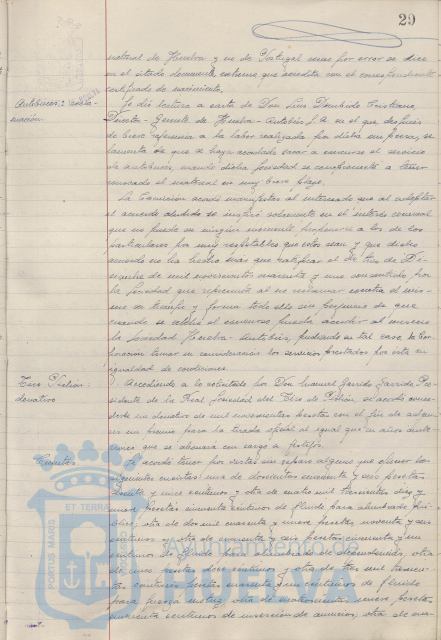 29
natural de Huelva y no de Portugal como por error se dice
en el citado documento, extremo que acredita con el correspondiente
certificado de nacimiento.
Autobuses: recla-
mación.
Se dió lectura a carta de Don Luis
Director-Gerente de Huelva-Autobús, S.A. en el que después
de breve referencia a la labor realizada por dicha Empresa, se
lamenta de que se haya acordado sacar a concurso el servicio
de autobuses, cuando dicha Sociedad se comprometió a tener
renovado el material en muy breve plazo.
La Comisión acordó manifestar al interesado que al adoptar
el acuerdo aludido se inspiró solamente en el interés comunal
que no puede en ningún momento posponerse a los de los
particulares por muy respetables que estos sean y que dicho
acuerdo no ha hecho más que ratificar el de tres de Di-
ciembre de mil novecientos cuarenta y uno consentido por
la Sociedad que representa al no reclamar contra el mis-
mo en tiempo y forma todo ello sin perjuicio de que
cuando se celebre el concurso pueda acudir al mismo
la Sociedad Huelva-Autobús, pudiendo en tal caso la Cor-
poración tomar en consideración los servicios prestados por esta en
igualdad de condiciones.
Tiro Pichón:
donativo
Accediendo a lo solicitado por Don Manuel Garrido Garrido, Pre-
sidente de la Real Sociedad del Tiro de Pichón, se acordó conce-
derle un donativo de mil novecientas pesetas con el fin de
un premio para la tirada oficial al igual que en años ante-
riores que se abonará con cargo a festejos.
Cuentas
Se acordó tener por vistas sin reparo alguno
cuentas: una de doscientas cuarenta y seis pesetas
y once céntimos; otra de cuatro mil trescientas diez y
nueve pesetas cincuenta céntimos de fluido para alumbrado pú-
blico; otra de dos mil cuarenta y nueve pesetas noventa y seis
céntimos
céntimos de fluido para alumbrado de dependencias; otra
de doce céntimos y otra de tres mil trescien-
tas cuarenta céntimos de fluido
para fuerza motriz; otra de cuatrocientas nueve pesetas
cuarenta céntimos de inserción de anuncios; otra de
Ayuntamiento
HUELVA
PORTUS MARIS
ET TERRAE